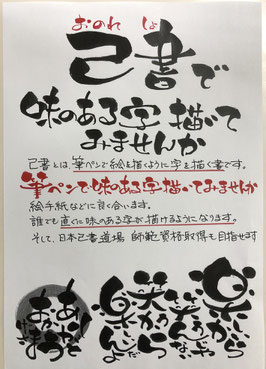 おのれ しょ
己書で
味のある字描いて
みませんか
己書とは、筆ペンで絵を描くように字を描く書です。
筆ペンで味のある字描いてみませんか
絵手紙などに良く合います。
誰でも直ぐに味のある字が描けるようになります。
そして、日本己書道場 師範資格取得も目指せます
楽しいから
笑うんじゃない
笑うから
楽しいんだよ